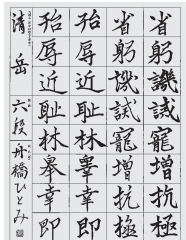 省躬譏誡
寵增抗極
省躬譏誡
寵增抗極
殆辱近耻
林皋幸即
殆辱近耻
林皋幸即
清岳
六段
舟橋ひとみ